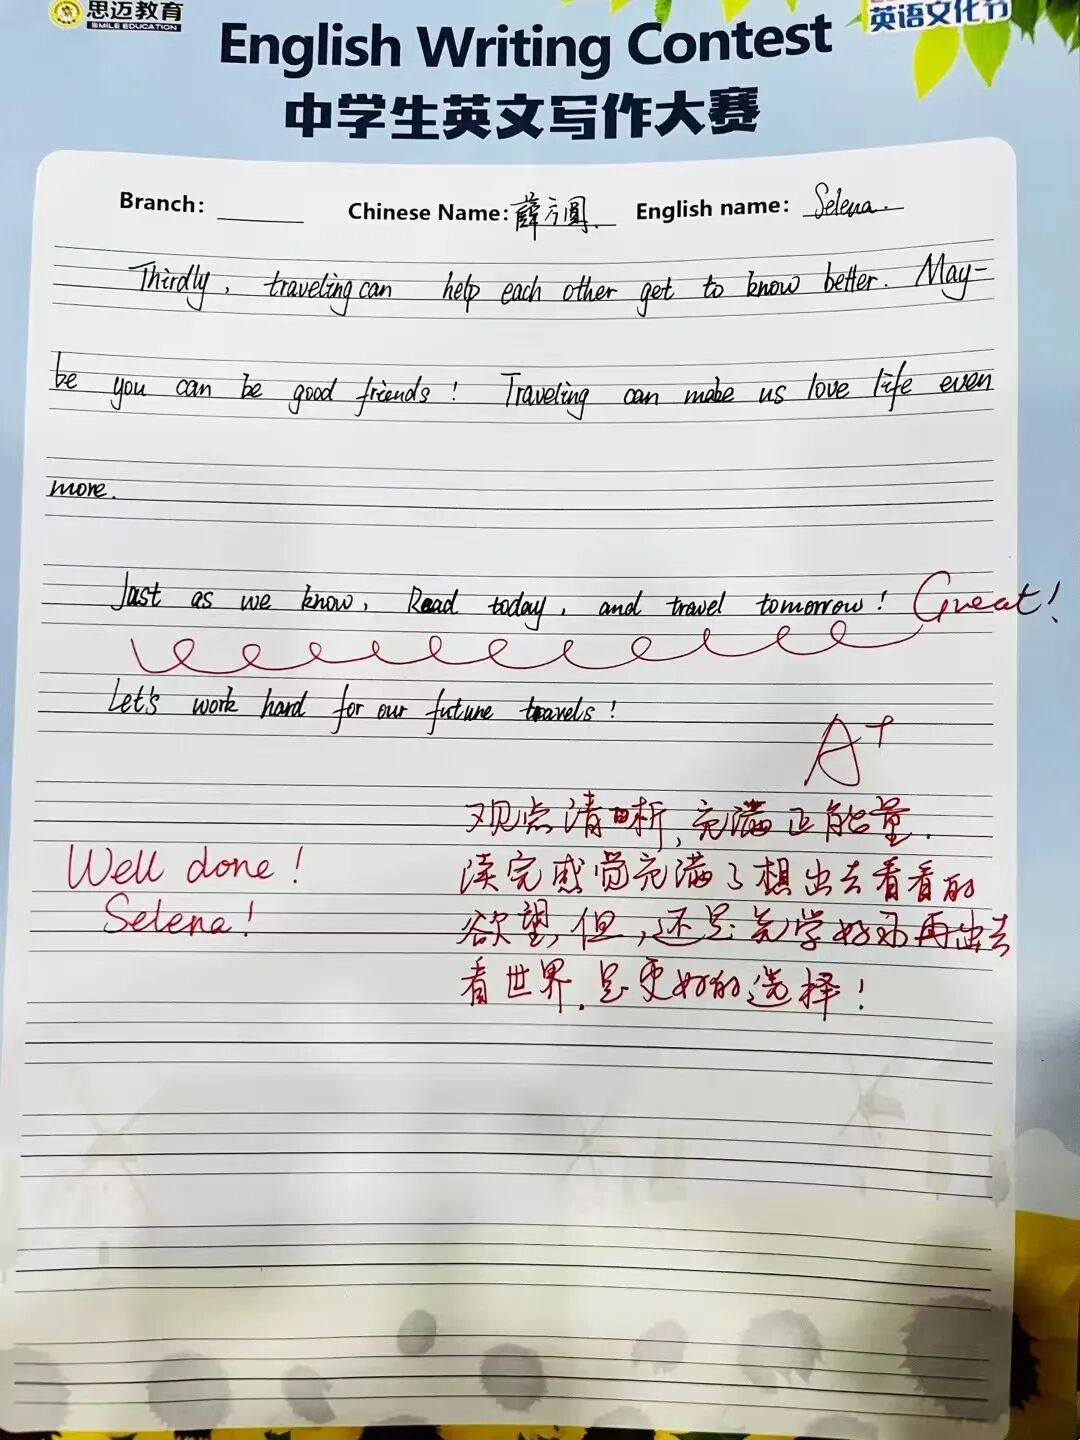 思迈教育
SMILE EDUCATION
英语文化节
English Writing Contest
中学生英文写作大赛
Branch:
Chinese Name: 薛方圆
English name: Selena
Thirdly, traveling can help each other get to know better. May-
be you can be good friends! Traveling can make us love life even
more.
Just as we know, Read today, and travel tomorrow! Great!
Let's work hard for our future travels!
A+
观点清晰,充满正能量.
读完感觉充满了想出去看看的
欲望,但,还是先学好习再出去
看世界,是更好的选择!
Well done!
Selena!